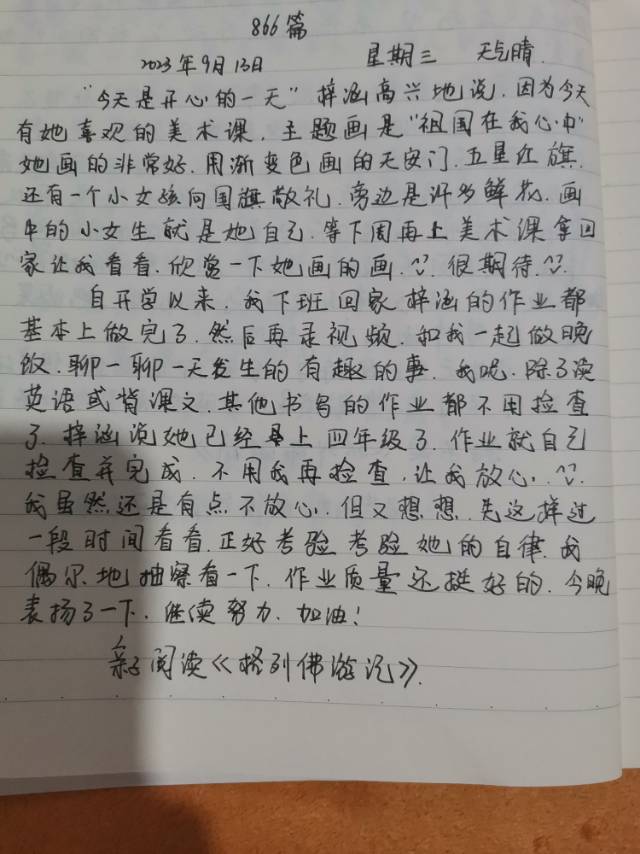 866篇
2023年9月13日 星期三 天气晴
"今天是开心的一天"梓涵高兴地说.因为今天
有她喜欢的美术课.主题画是"祖国在我心中"
她画的非常好.用渐变色画的天安门.五星红旗.
还有一个小女孩向国旗敬礼.旁边是许多鲜花.画
中的小女生就是她自己.等下周再上美术课拿回
家让我看看.欣赏一下她画的画.很期待.
自开学以来.我下班回家梓涵的作业都
基本上做完了.然后再录视频.和我一起做晚
饭.聊一聊一天发生的有趣的事.我呢.除了读
英语或背课文.其他书写的作业都不用检查
了.梓涵说她已经是上四年级了.作业就自己
检查并完成.不用我再检查.让我放心.
我虽然还是有点不放心.但又想想.先这样过
一段时间看看.正好考验考验她的自律.我
偶尔地抽察看一下.作业质量还挺好的.今晚
表扬了一下.继续努力.加油!
亲子阅读《格列佛游记》.